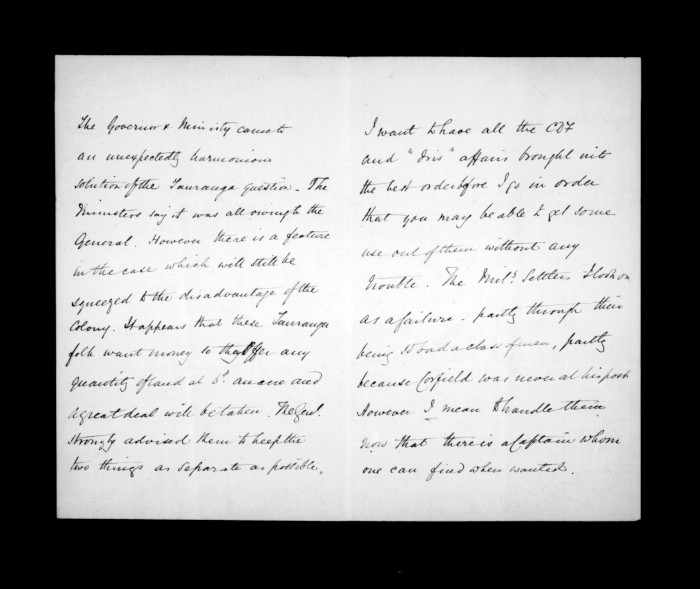 The Governor & Ministry came to
an unexpectedly harmonious
solution of the Tauranga question - The
Ministers say it was all owing to the
General. However there is a feature
in the case which will still be
squeezed to the disadvantage of the
Colony. It appears that these Tauranga
folk want money so they offer any
quantity of land at 5/- an acre and
a great deal will be taken. The Genl.
strongly advised them to keep the
two things as separate as possible.
I want to have all the CDF
and "Iris" affairs brought into
the best order before I go in order
that you may be able to get some
use out of them without any
trouble. The Mily. Settlers I look on
as a failure - partly through their
being so bad a class of men, partly
because Corfield was never at his post
However I mean to handle them
now that there is a Captain whom
one can find when wanted.